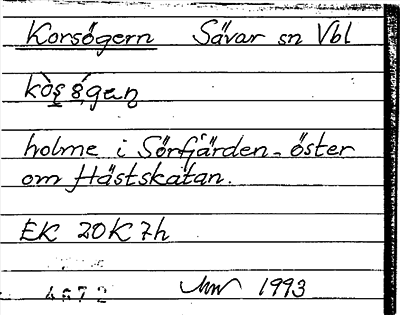 Korsögern Sävar sn Vbl
holme i Sörfjärden - öster
om Hästskatan.
EK 20K 7h
4672 1993